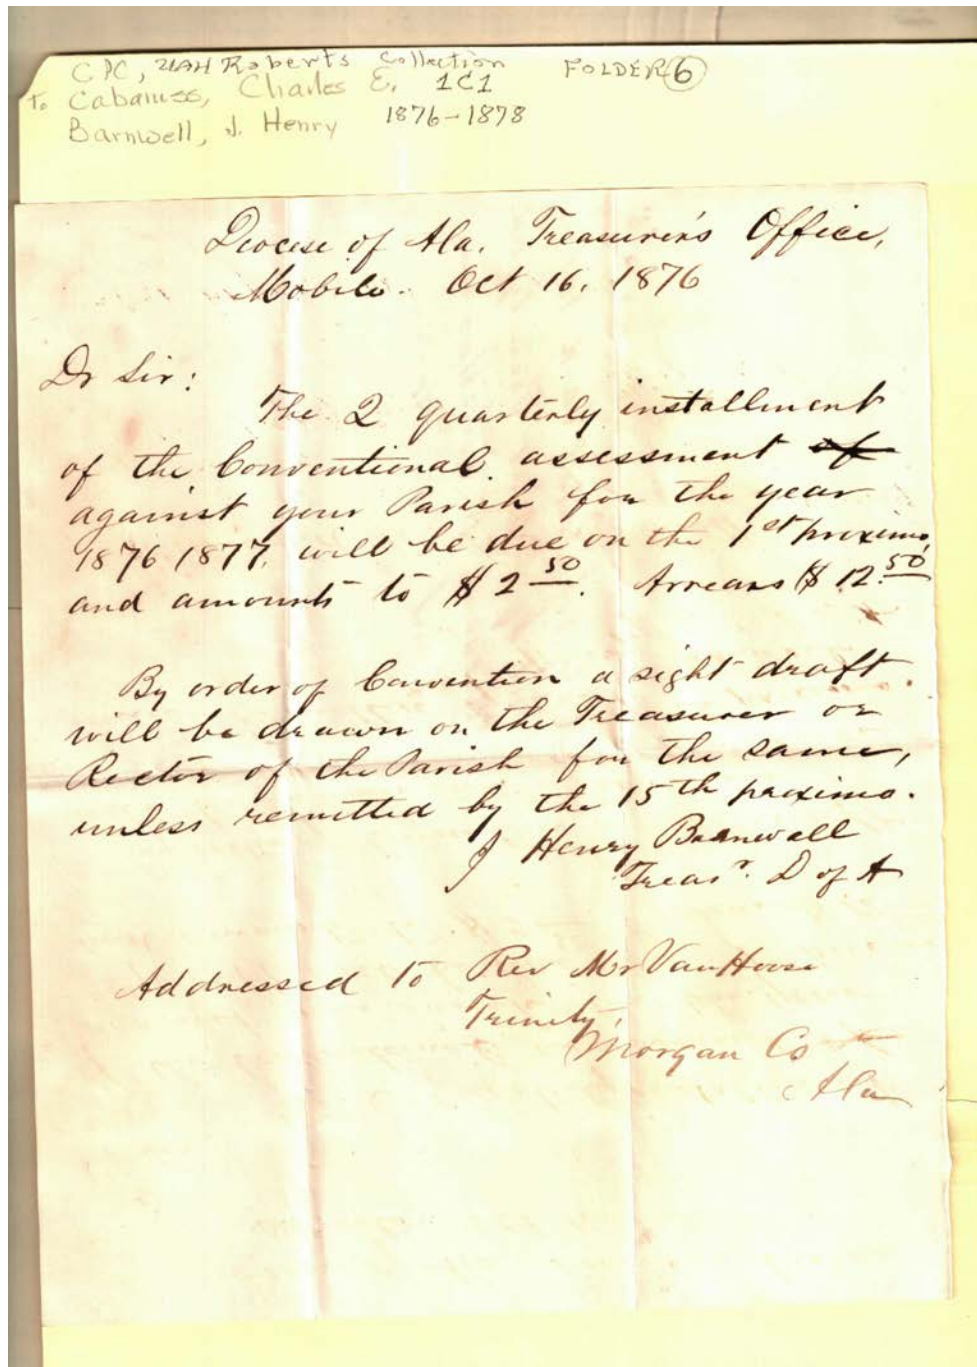 CPC, UAH Roberts Collection FOLDER 6
To Cabaniss, Charles E. 1C1
Barnwell, J. Henry 1876-1878
Diocese of Ala. Treasurer's Office,
Mobile. Oct 16, 1876
Dr Sir:
The 2 quarterly installment
of the Conventional assessment of
against your Parish for the year
1876 1877, will be due on the 1st proximo,
and amounts to $2 50. Arrears $12.50
By order of Convention a sight draft
will be drawn on the Treasurer or
Rector of the Parish for the same,
unless remitted by the 15th proximo.
J Henry Barnwell
Treasr. D of A
Addressed to Rev Mr Van Hoose
Trinity,
Morgan Co
Ala